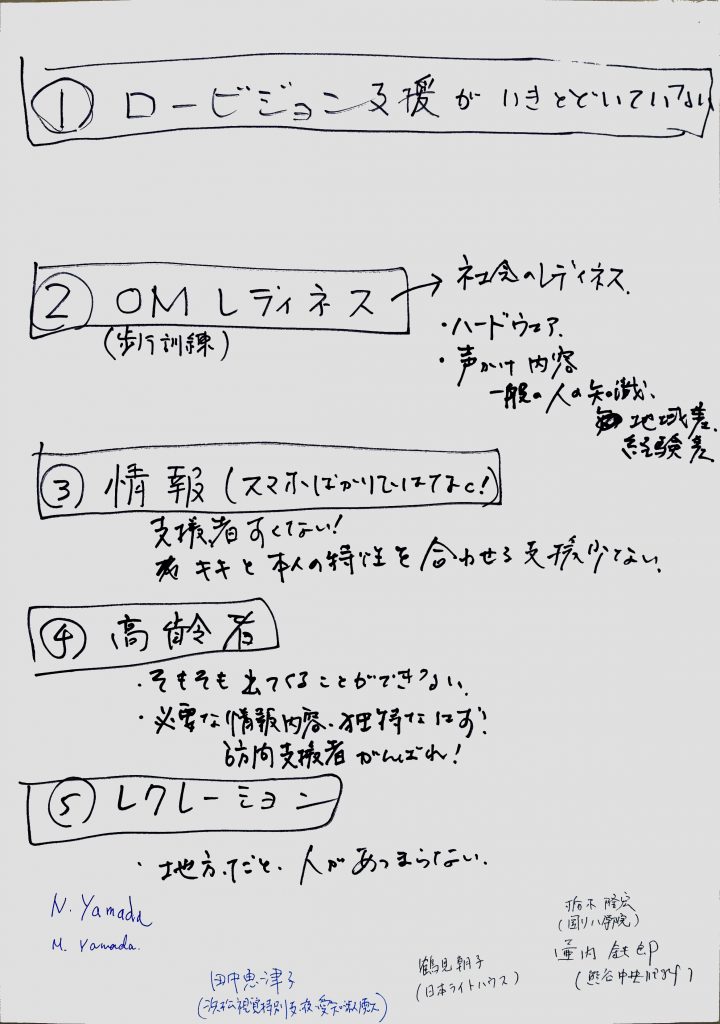 ① ロービジョン支援がいきとどいていない
② OMレディネス → 社会のレディネス.
(歩行訓練)
・ハードウェア
・声かけ内容
一般の人の知識.
地域差.
経験差
③ 情報(スマホばかりではなく!)
支援者すくない!
キキと本人の特性を合わせる支援少ない.
④ 高齢者
・そもそも出てくることができない.
・必要な情報内容.独特なはず!
訪問支援者がんばれ!
⑤ レクレーション
・地方だと、人があつまらない.
N. Yamada
M. Yamada.
田中恵津子
鶴見朝子
(日本ライトハウス)
隆宏
(国リハ学院)